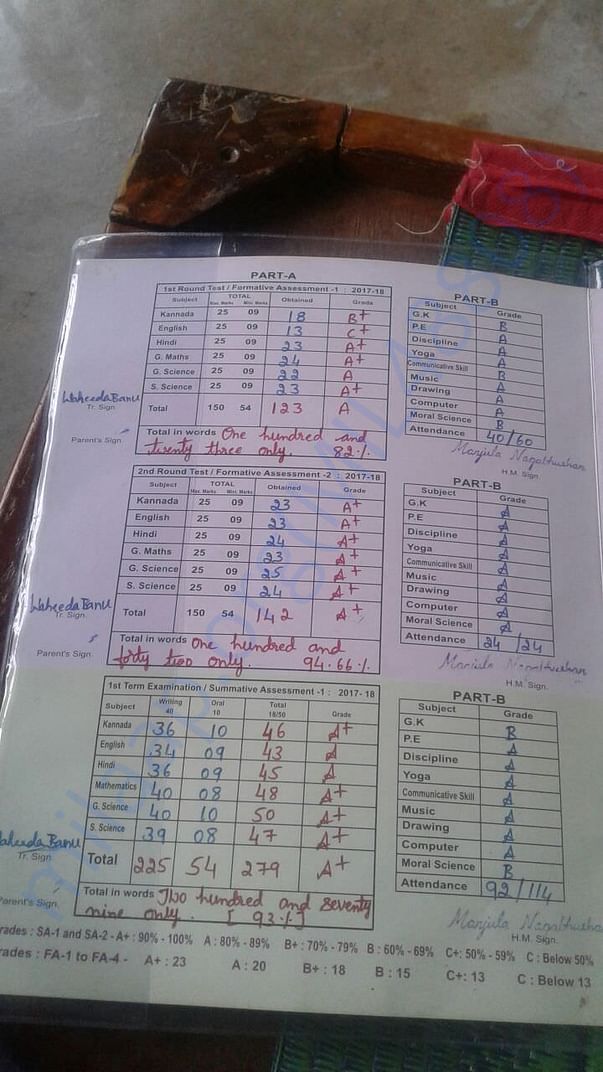 PART-A
1st Round Test / Formative Assessment -1 : 2017-18
Subject TOTAL Obtained Grade
Max. Marks Min. Marks
Kannada 25 09 18 B+
English 25 09 13 C+
Hindi 25 09 23 A+
G. Maths 25 09 24 A+
G. Science 25 09 22 A
S. Science 25 09 23 A+
Total 150 54 123 A
Total in words One hundred and
twenty three only. 82%
Waheeda Banu
Tr. Sign.
Parent's Sign.
PART-B
Subject Grade
G.K B
P.E A
Discipline A
Yoga A
Communicative Skill B
Music A
Drawing A
Computer A
Moral Science B
Attendance 40/60
Manjula Nagabhushan
H.M. Sign.
2nd Round Test / Formative Assessment -2 : 2017-18
Subject TOTAL Obtained Grade
Max. Marks Min. Marks
Kannada 25 09 23 A+
English 25 09 23 A+
Hindi 25 09 24 A+
G. Maths 25 09 23 A+
G. Science 25 09 25 A+
S. Science 25 09 24 A+
Total 150 54 142 A+
Total in words One hundred and
forty two only. 94.66%
Waheeda Banu
Tr. Sign.
Parent's Sign.
PART-B
Subject Grade
G.K A
P.E A
Discipline A
Yoga A
Communicative Skill A
Music A
Drawing A
Computer A
Moral Science A
Attendance 24/24
Manjula Nagabhushan
H.M. Sign.
1st Term Examination / Summative Assessment -1 : 2017- 18
Subject Writing 40 Oral 10 Total 18/50 Grade
Kannada 36 10 46 A+
English 34 09 43 A
Hindi 36 09 45 A
Mathematics 40 08 48 A+
G. Science 40 10 50 A+
S. Science 39 08 47 A+
Total 225 54 279 A+
Total in words Two hundred and seventy
nine only. [ 93%]
Waheeda Banu
Tr. Sign.
Parent's Sign.
PART-B
Subject Grade
G.K B
P.E A
Discipline A
Yoga A
Communicative Skill A
Music A
Drawing A
Computer A
Moral Science B
Attendance 92/114
Manjula Nagabhushan
H.M. Sign.
rades : SA-1 and SA-2 - A+ : 90% - 100% A : 80% - 89% B+ : 70% - 79% B : 60% - 69% C+: 50% - 59% C : Below 50%
rades : FA-1 to FA-4 - A+ : 23 A : 20 B+ : 18 B : 15 C+: 13 C : Below 13